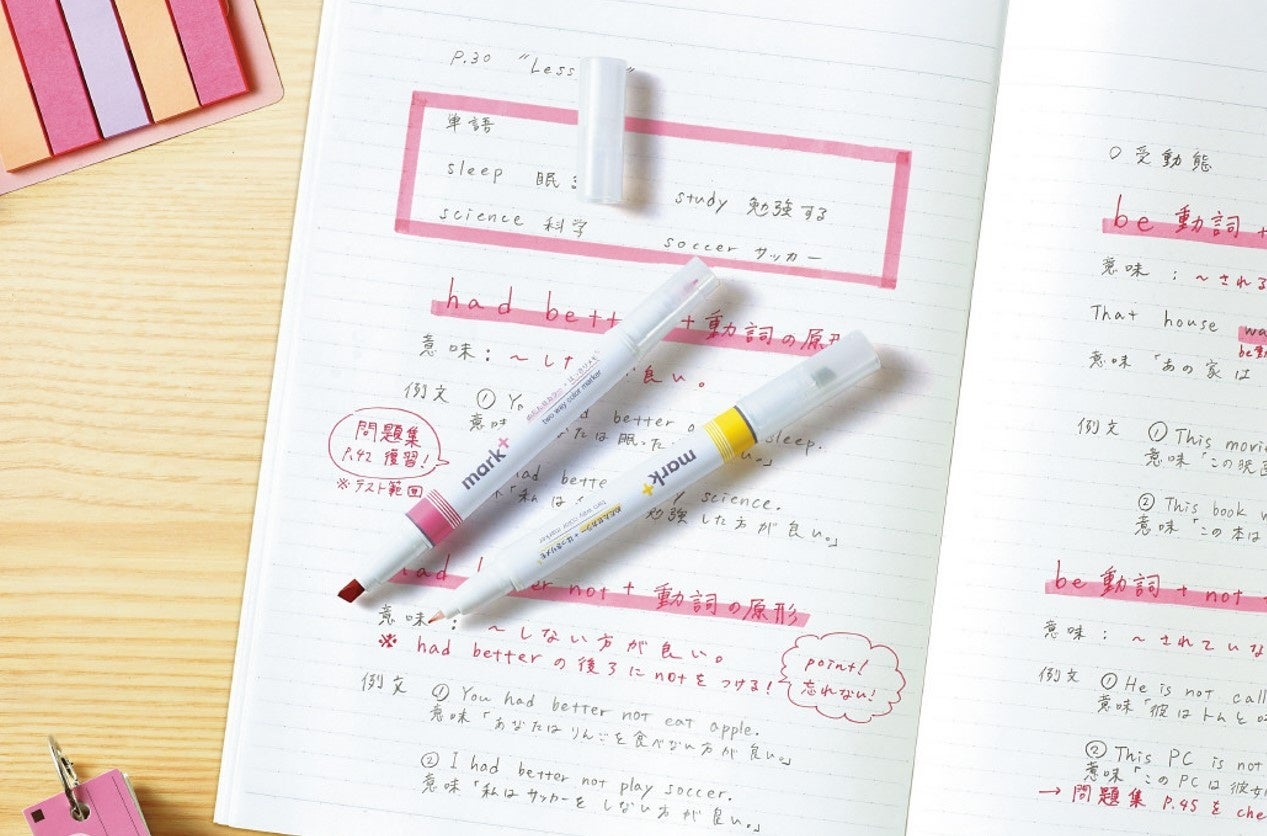 P.30 "Less
単語
sleep 眠
study 勉強する
science 科学
soccer サッカー
had bett + 動詞の原形
意味: 〜した 良い。
例文 ① You
better
sleep.
意味
たは眠った
い。」
問題集
P.42 復習!
※テスト範囲
had bette
science.
「私は
勉強した方が良い。」
mark+
two way color marker
mark+
two way color marker
had better not + 動詞の原形
意味: 〜しない方が良い。
※ had better の後ろにnotをつける!
point!
忘れない!
例文 ① You had better not eat apple.
意味「あなたはりんごを食べない方が良い。」
② I had better not play soccer.
意味「私はサッカーをしない方が良い。」
○受動態
be 動詞 +
意味: 〜される
That house wa
be動
意味「あの家は
例文 ① This movi
意味「この映画
② This book w
意味「この本は
be 動詞 + not
意味: 〜されていな
例文 ① He is not call
意味「彼はトムと
② This PC is not
意味「このPCは彼女
→ 問題集 P.45 を che